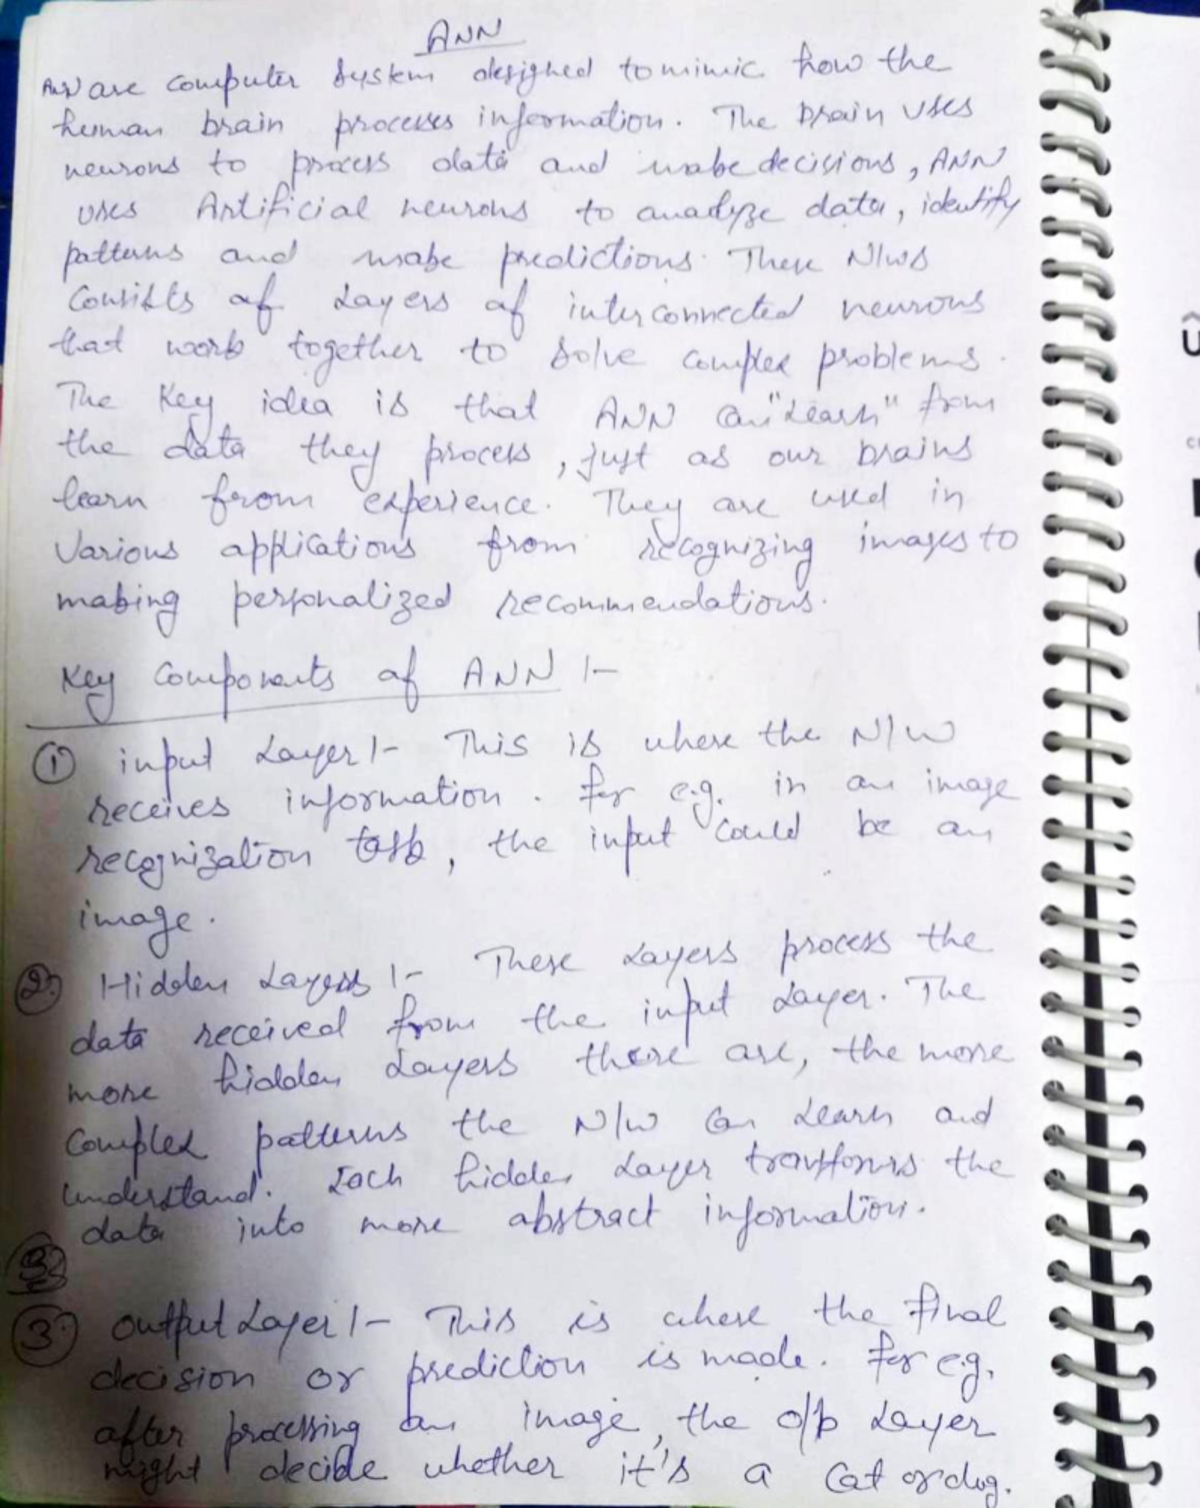 ANN
ANN are computer system designed to mimic how the
human brain processes information. The brain uses
neurons to process data and make decisions, ANN
uses Artificial neurons to analyze data, identify
patterns and make predictions. These N/Ws
Consists of Layers of interconnected neurons
that work together to solve complex problems.
The Key idea is that ANN can "Learn" from
the data they process, just as our brains
learn from experience. They are used in
Various applications from recognizing images to
making personalized recommendations.
Key Components of ANN :-
① input Layer :- This is where the N/W
receives information. For e.g. in an image
recognization task, the input could be an
image.
② Hidden Layers :- These Layers process the
data received from the input Layer. The
more hidden Layers there are, the more
Complex patterns the N/W can Learn and
understand. Each hidden Layer transforms the
data into more abstract information.
③ Output Layer :- This is where the final
decision or prediction is made. For e.g.
after processing an image, the o/p Layer
might decide whether it's a Cat or dog.
U